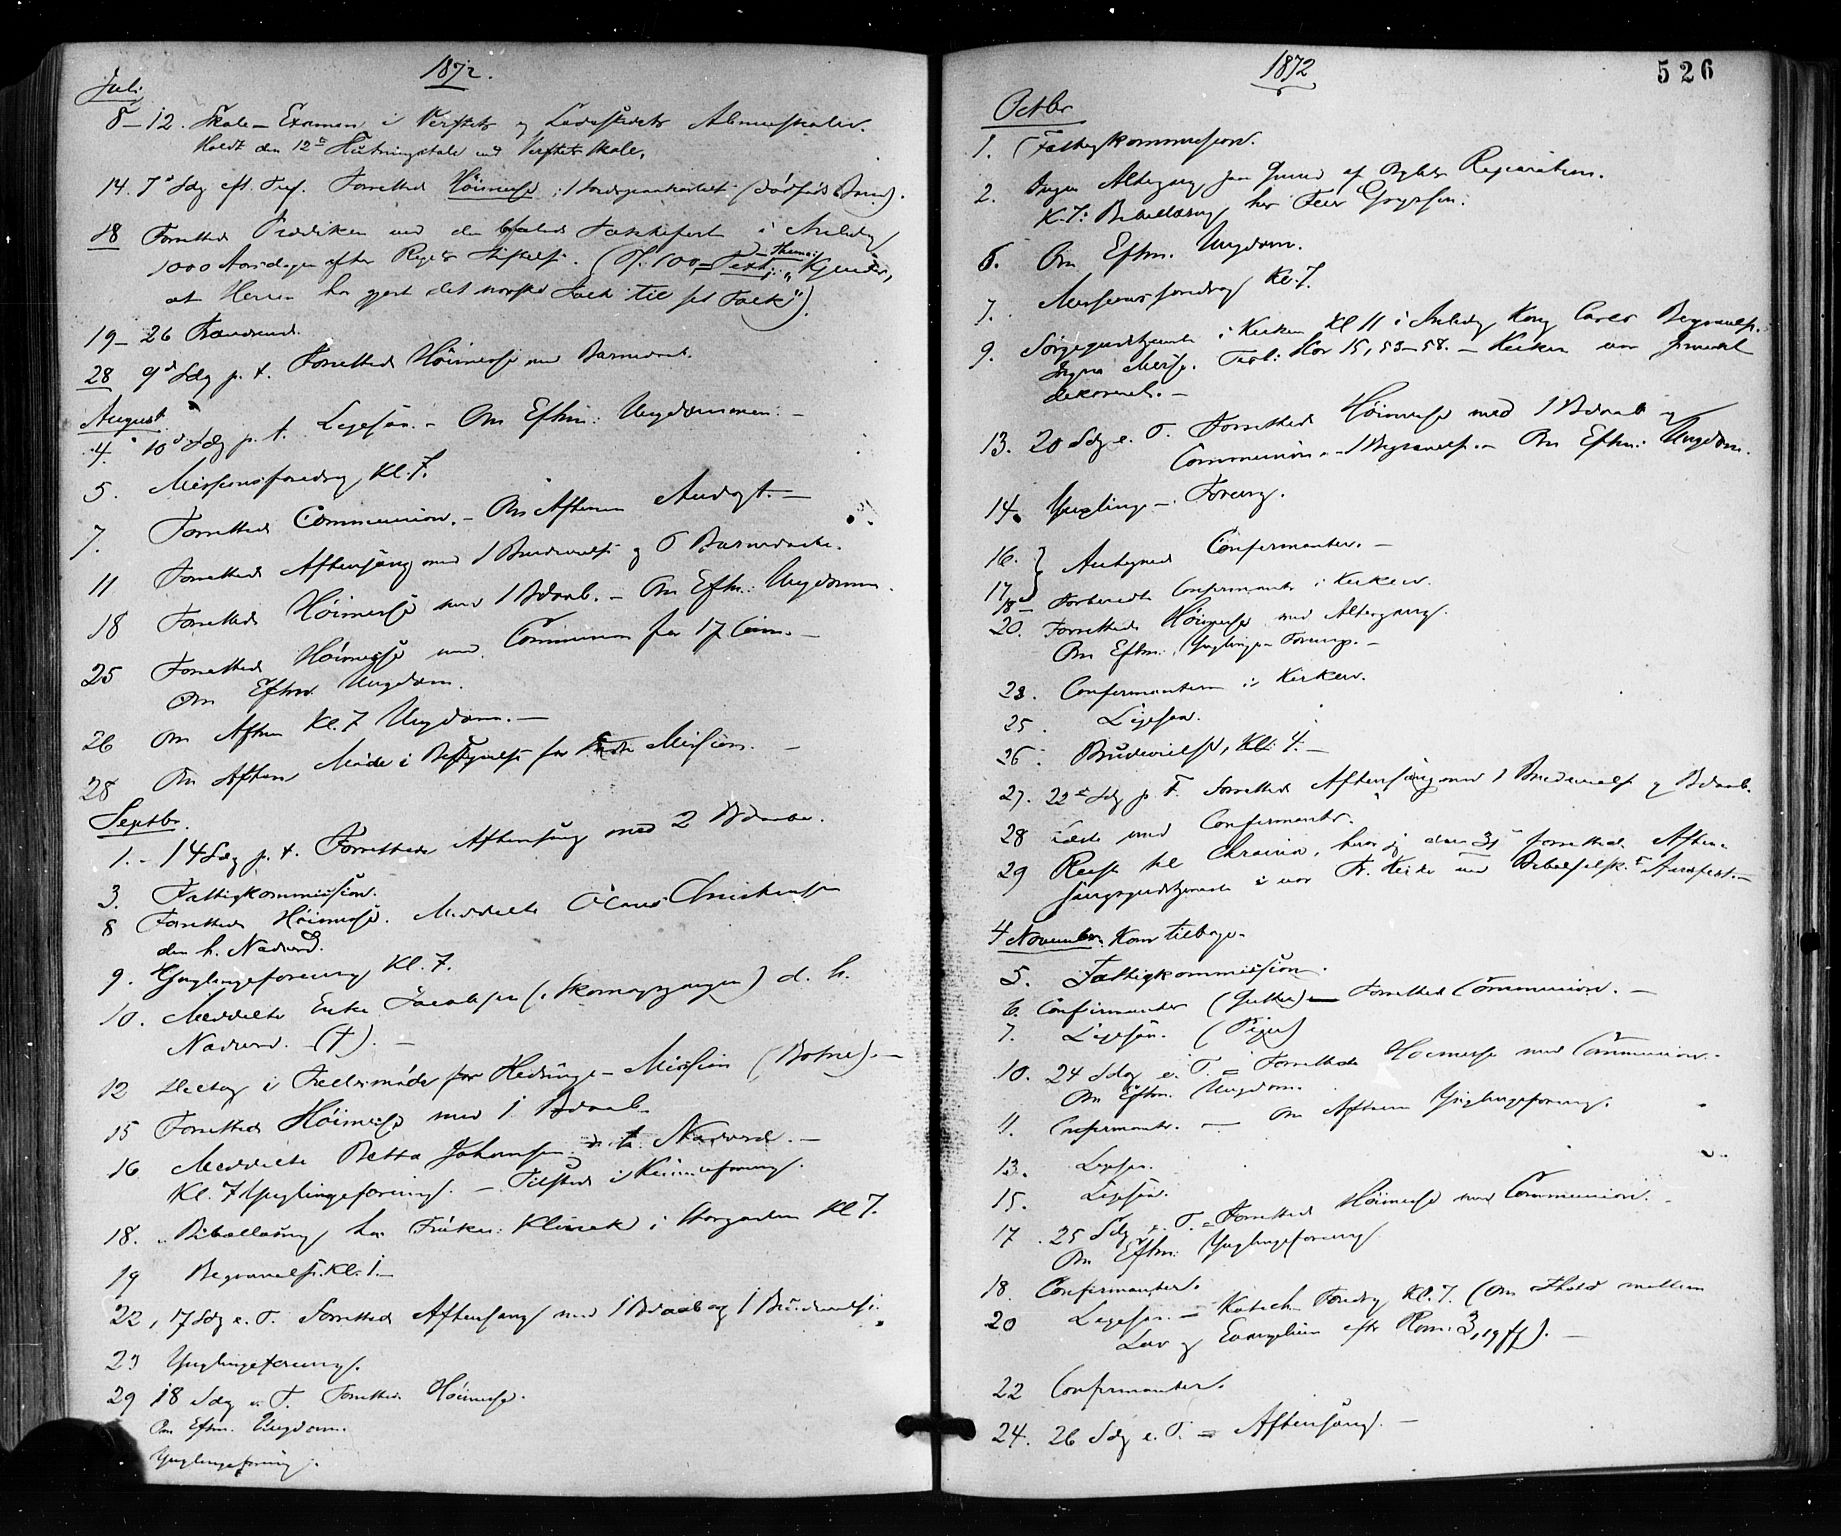 1872.
Juli
8–12. Skole-Examen i Verftets og Ladestedets Almueskoler.
Holdt den 12te Slutningstale ved Verftets Skole.
14. 7de Sdg eft. Tref. Forrettede Höimesse
18 Forrettede Prædiken ved den befalede Takkefest i Anledn
1000 Aarsdagen efter Rigets Stiftelse. (Ps. 100 = Text; – Thema: "Kjender,
at Herren har gjort det norske Folk til sit Folk").
19–26 Fraværende.
28 9de Sdg p. t. Forrettede Höimesse med Barnedaab.
August
4. 10de Sdg p. t. Ligefærd. – Om Efterm: Ungdommen. –
5. Missionsforedrag Kl. 7.
7. Forrettede Communion. – Om Aftenen Andagt. –
11 Forrettede Aftensang med 1 Brudevielse og 6 Barnedaab.
18 Forrettede Höimesse med 1 Bdaab. – Om Efterm: Ungdommen.
25 Forrettede Höimesse med Communion for 17 Com. –
Om Efterm Ungdom.
26 Om Aften Kl. 7 Ungdom. –
28 Om Aften Möde i Bestyrelse for Mission. –
Septbr.
1. – 14 Sdg p. t. Forrettede Aftensang med 2 Bdaabe.
3. Fattigkommission.
8 Forrettede Höimesse. Meddelte Olaus Christensen
den h. Nadverd.
9. Ynglingeforening Kl. 7.
10. Meddelte Enke Jacobsen (i Skomagergangen) d. h.
Nadverd. (†). –
12 Deeltog i Fællesmöde for Hednинge-Mission (Botne). –
15 Forrettede Höimesse med 1 Bdaab.
16 Meddelte Betta Johansen d. h. Nadverd. –
Kl. 7 Ynglingeforening. – Tilstede i Kvindeforening.
18. Bibellæsning hos Fröken Klinck i Storgaden Kl 7.
19 Begravelse Kl. 1. –
22, 17 Sdg e. T. Forrettede Aftensang med 1 Bdaab og 1 Brudevielse.
23 Ynglingeforening.
29 18 Sdg e. T. Forrettede Höimesse.
Om Efterm. Ungdom.
Ynglingeforening.
526
1872
Octbr
1. Fattigkommission.
2. Ingen Altergang paa Grund af Orglets Reparation.
Kl. 7. Bibellæsning hos
6. Om Efterm. Ungdom.
7. Missionsforedrag Kl. 7.
9. Sörgegudstjeneste i Kirken Kl 11 i Anledn Kong Carls Begravelse.
Ingen Messe. Text: 1 Kor 15, 53–58. – Kirken var smukt
dekoreret. –
13. 20 Sdg e. T. Forrettede Höimesse med 1 Bdaab og
Communion. – 1 Begravelse. – Om Efterm: Ungdom.
14. Ynglinge-Forening.
16. } Antegnede Confirmanter. –
17
18 – Forberedte Confirmanter i Kirken.
20. Forrettede Höimesse med Altergang.
Om Efterm. Ynglinge-Forening. –
23. Confirmanterne i Kirken.
25. Ligefærd.
26. Brudevielse, Kl: 4. –
27. 22de Sdg p. T. Forrettede Aftensang med 1 Brudevielse og Bdaab.
28 læste med Confirmanter.
29 Reiste til Chrania, hvor jeg den 31 forrettede Aften-
sangsgudstjeneste i vor Fr. Kirke ved Bibelselsk. Aarsfest. –
4 November. Kom tilbage.
5. Fattigkommission.
6. Confirmander (Gutter) – Forrettede Communion. –
7. Ligefærd. (Piger)
10. 24 Sdg e. T. = Forrettede Höimesse med Communion. –
Om Efterm. Ungdom.
11. Confirmanter. – Om Aftenen Ynglingeforening.
13. Ligefærd.
15. Ligefærd.
17. 25 Sdg e. T. = Forrettede Höimesse med Communion. –
Om Efterm: Ynglingeforening
18. Confirmanter.
20 Ligefærd. – Katech. Foredrag Kl. 7. (om Forhold mellem
Lov og Evangelium efter Rom. 3, 19 ff). –
22 Confirmanter.
24. 26 Sdg e. T. = Aftensang. –